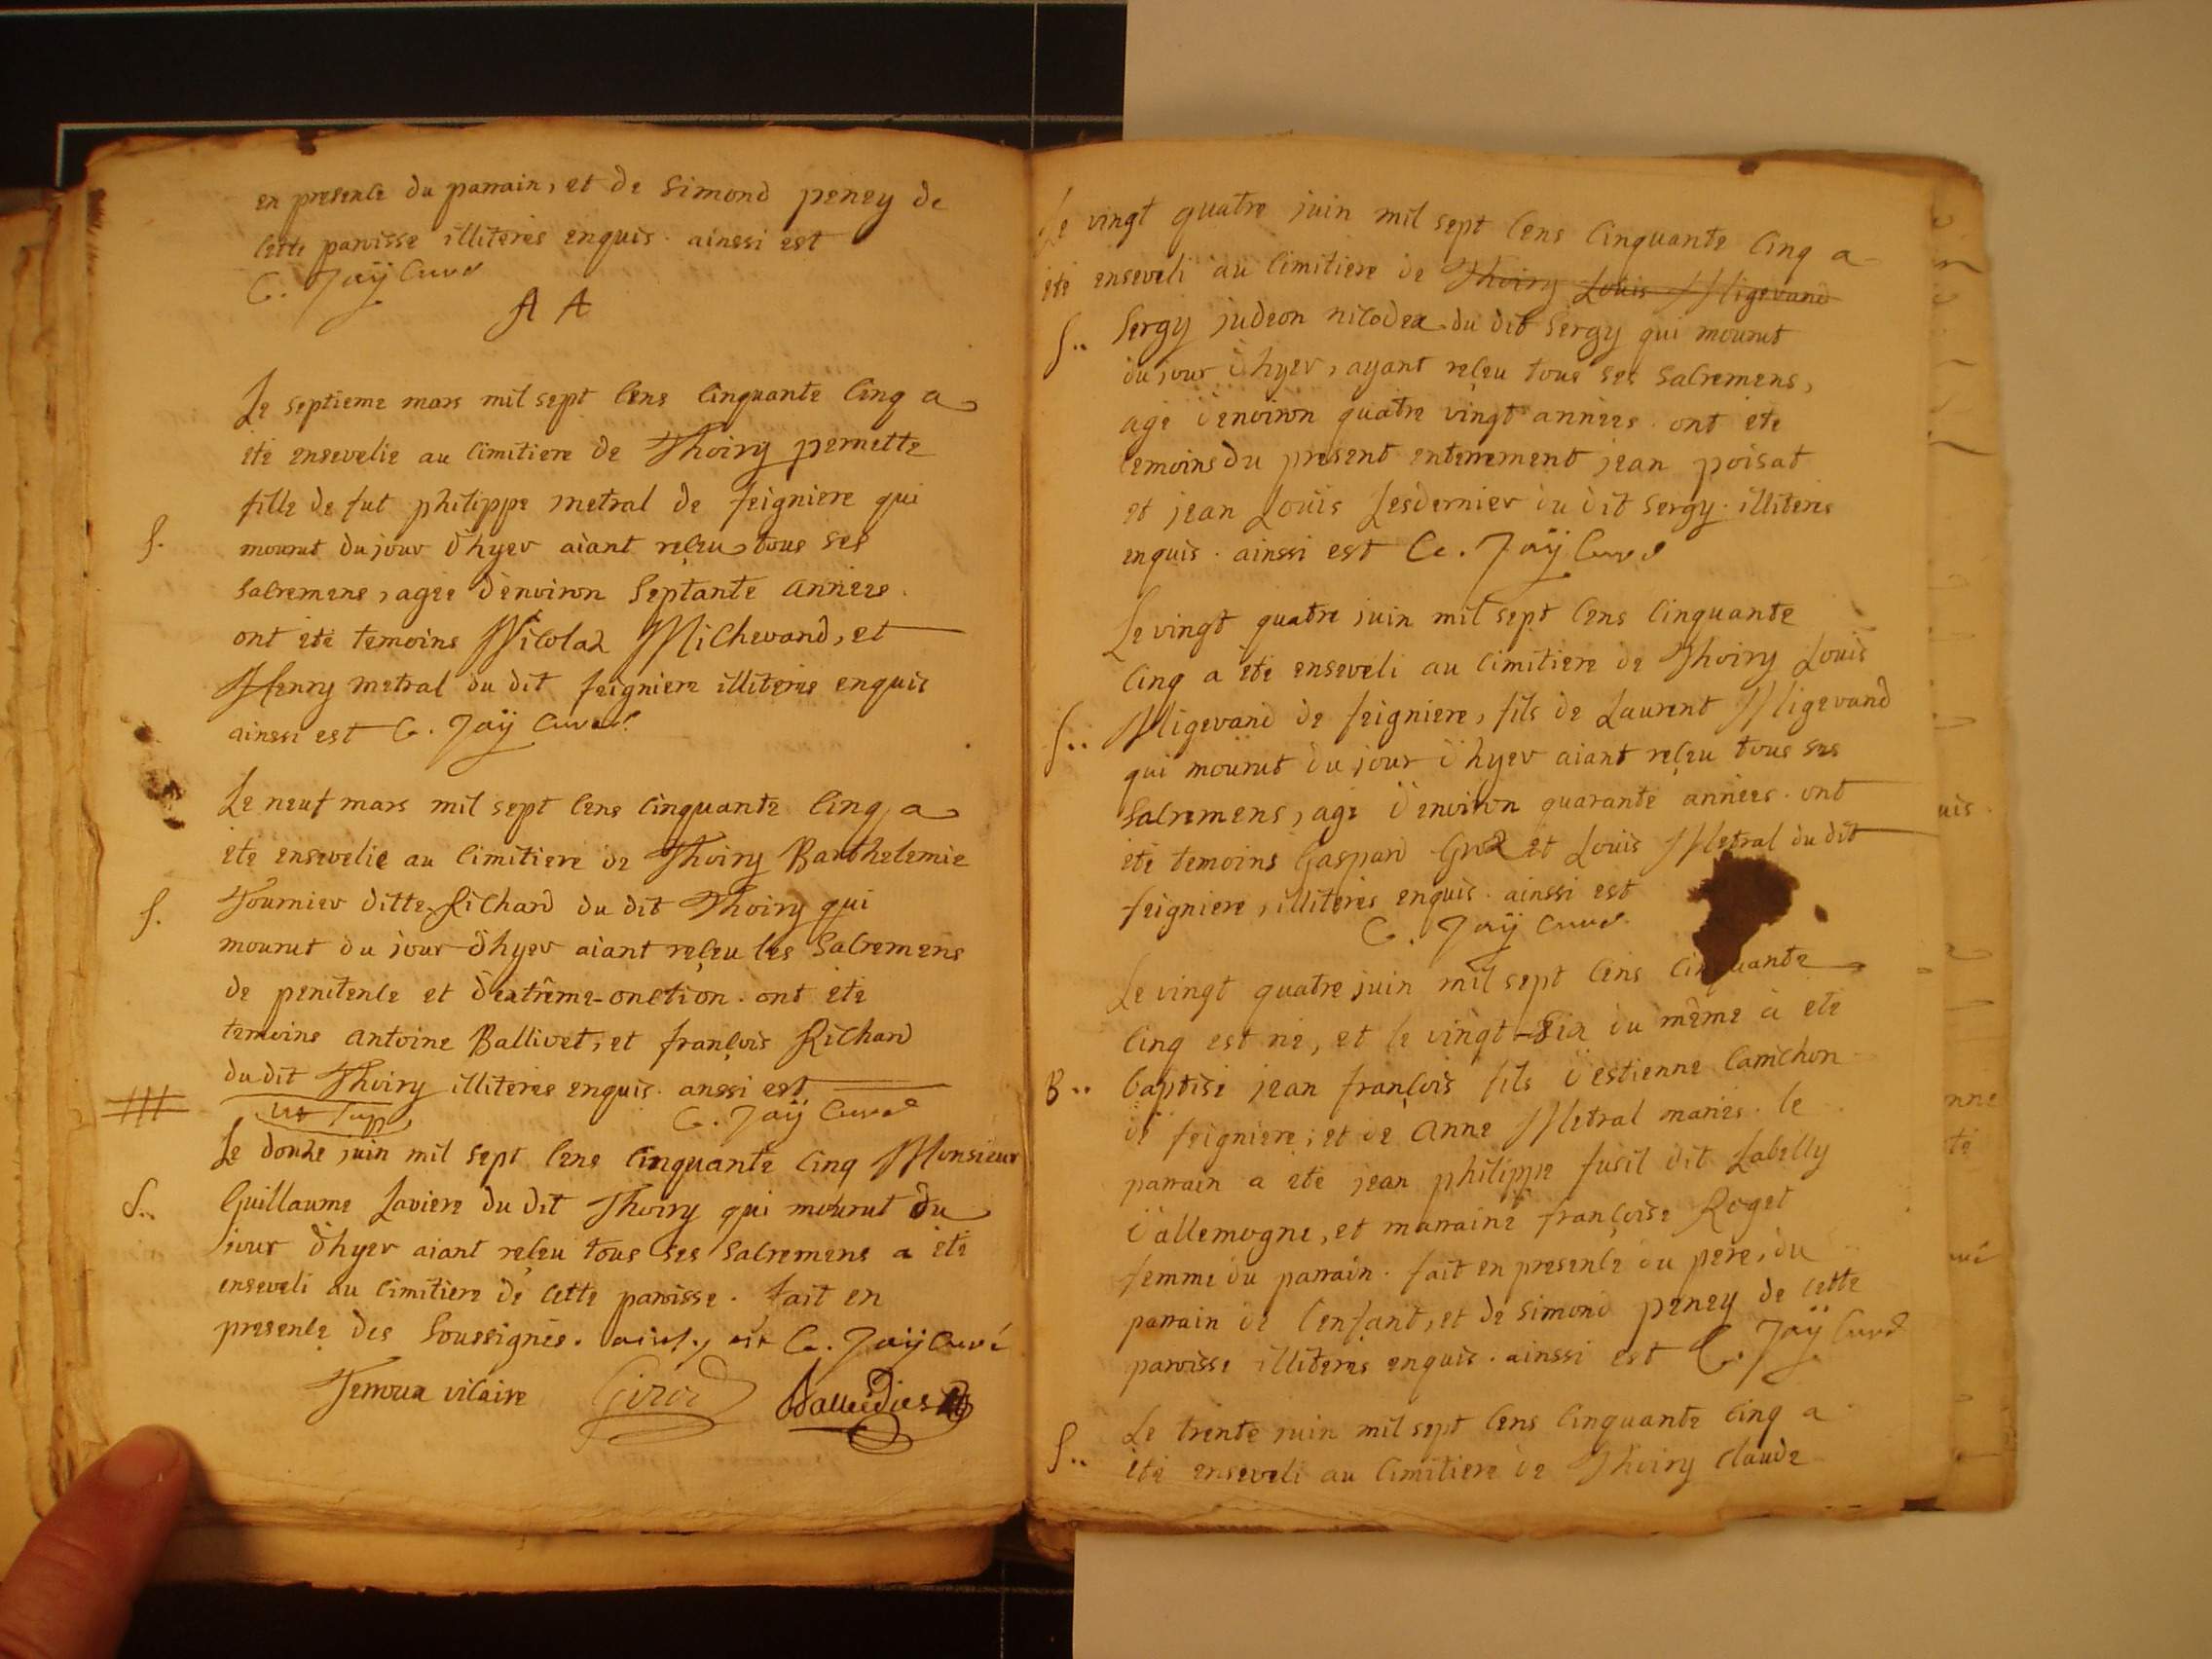 en presence du parrain, et de simond peney de
cette paroisse illiterés enquis. ainssi est
C. Jaÿ Curé
A A
Le septieme mars mil sept cens cinquante cinq a
été ensevelie au cimitiere de Thoiry pernette
fille de fut philippe metral de feigniere qui
S.
mourut du jour d'hyer aiant reçeu tous ses
sacremens, agée d'environ septante années.
ont été temoins Nicolax Michevand, et
Henry metral du dit feigniere illiterés enquis
ainssi est C. Jaÿ Curé
Le neuf mars mil sept cens cinquante cinq a
eté ensevelie au cimitiere de Thoiry Barthelemie
S.
Fournier ditte Richard du dit Thoiry qui
mourut du jour d'hyer aiant reçeu les sacremens
de penitence et d'extrême-onction. ont eté
temoins antoine Ballivet, et françois Richard
du dit Thoiry illiterés enquis. anssi est
C. Jaÿ Curé
Le douze juin mil sept cens cinquante cinq Monsieur
S..
Guillaume Laviere du dit Thoiry qui mourut du
jour d'hyer aiant reçeu tous ses sacremens a eté
enseveli au cimitiere de cette paroisse. fait en
presence des soussignés. ainsy est C. Jaÿ Curé
vilaire Girod
Le vingt quatre juin mil sept cens cinquante cinq a
été enseveli au cimitiere de Thoiry Louis Migevand
S..
Sergy judeon nicodex du dit Sergy qui mourut
du jour d'hyer, ayant reçeu tous ses sacremens,
agé d'environ quatre vingt années. ont eté
temoins du present enterrement jean poisat
et jean Louis Lesdernier du dit Sergy. illiterés
enquis. ainssi est C. Jaÿ Curé
Le vingt quatre juin mil sept cens cinquante
cinq a été enseveli au cimitiere de Thoiry Louis
S..
Migevand de feigniere, fils de Laurent Migevand
qui mourut du jour d'hyer aiant reçeu tous ses
sacremens, agé d'environ quarante années. ont
été temoins Gaspard Grox et Louis Metral du dit
feigniere, illiterés enquis. ainssi est
C. Jaÿ Curé
Le vingt quatre juin mil sept cens cinquante
cinq est né, et le vingt-six du même a eté
B..
baptisé jean françois fils d'estienne Camchon
de feigniere, et de anne Metral mariés. le
parrain a eté jean philippe fusil dit Labelly
d'allemogne, et marraine françoise Roget
femme du parrain. fait en presence du pere, du
parrain de l'enfant, et de simond peney de cette
paroisse illiterés enquis. ainssi est C. Jaÿ Curé
Le trente juin mil sept cens cinquante cinq a
S..
été enseveli au cimitiere de Thoiry claude